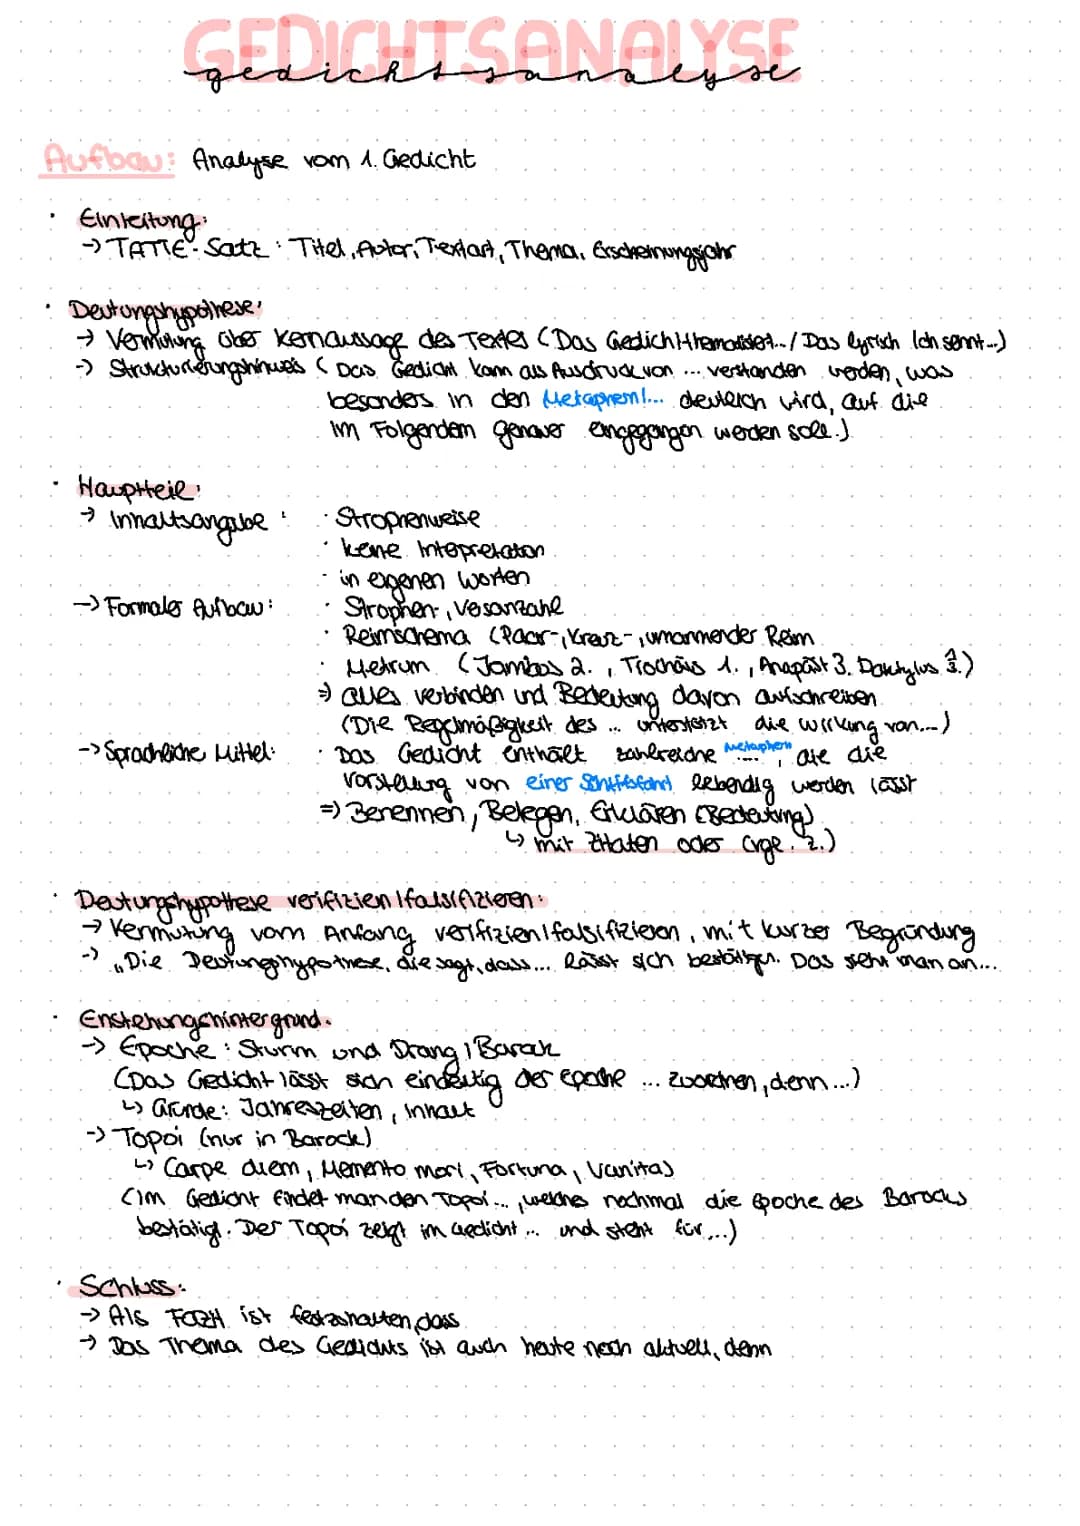 GEDICHTSANALYSE
gedichtsanalyse
Aufbau: Analyse vom 1. Gedicht
· Einleitung:
→ TATTE-Satz: Titel, Autor, Textart, Thema, Erscheinungsjahr
· Deutungshypothese:
→ Vermutung über Kernaussage des Textes (Das Gedicht thematisiert.../Das lyrisch Ich sehnt...)
→ Strukturierungshinweis (Das Gedicht kann als Ausdruck von ... verstanden werden, was
besonders in den Metaphern/... deutlich wird, auf die
im Folgendem genauer eingegangen werden soll.)
· Hauptteil:
→ Inhaltsangabe: · Strophenweise
· keine Intepretation
· in eigenen Worten
→ Formaler Aufbau: · Strophen-, Versanzahl
· Reimschema (Paar-, Kreuz-, umarmender Reim
· Metrum (Jambos 2., Trochäus 1., Anapäst 3. Daktylus 1/3.)
⇒ alles verbinden und Bedeutung davon aufschreiben
(Die Regelmäßigkeit des ... unterstützt die Wirkung von...)
→ Sprachliche Mittel: · Das Gedicht enthält zahlreiche Metaphern ...., die die
Vorstellung von einer Schiffsfahrt lebendig werden lässt
⇒ Benennen, Belegen, Erklären (Bedeutung)
↳ mit Zitaten oder (vgl. Z.)
· Deutungshypothese verifizien/falsifizieren:
→ Vermutung vom Anfang verifizien/falsifizieren, mit kurzer Begründung
→ „Die Deutunghypothese, die sagt, dass... lässt sich bestätigen. Das sieht man an...
· Enstehungshintergrund.
→ Epoche: Sturm und Drang / Barock
(Das Gedicht lässt sich eindeutig der Epoche ... zuordnen, denn...)
↳ Gründe: Jahreszeiten, Inhalt
→ Topoi (nur in Barock)
↳ Carpe diem, Memento mori, Fortuna, Vanitas
(Im Gedicht findet man den Topoi..., welches nochmal die Epoche des Barocks
bestätigt. Der Topoi zeigt im Gedicht ... und steht für...)
· Schluss:
→ Als Fazit ist festzuhalten, dass
→ Das Thema des Gedichts ist auch heute noch aktuell, denn